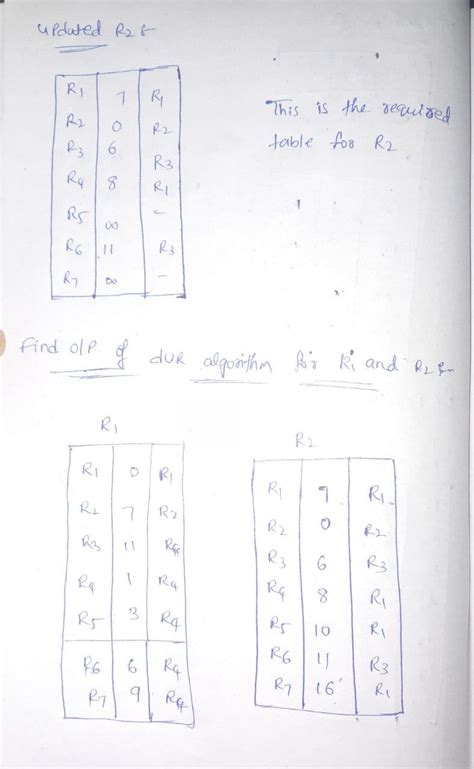 updated R2 :-
R1 7 R1
R2 0 R2
R3 6 R3
R4 8 R1
R5 ∞ -
R6 11 R3
R7 ∞ -
This is the required
table for R2
Find o/p of dUR algorithm for R1 and R2 :-
R1
R1 0 R1
R2 7 R2
R3 11 R4
R4 1 R4
R5 3 R4
R6 6 R4
R7 9 R4
R2
R1 7 R1
R2 0 R2
R3 6 R3
R4 8 R1
R5 10 R1
R6 11 R3
R7 16 R1